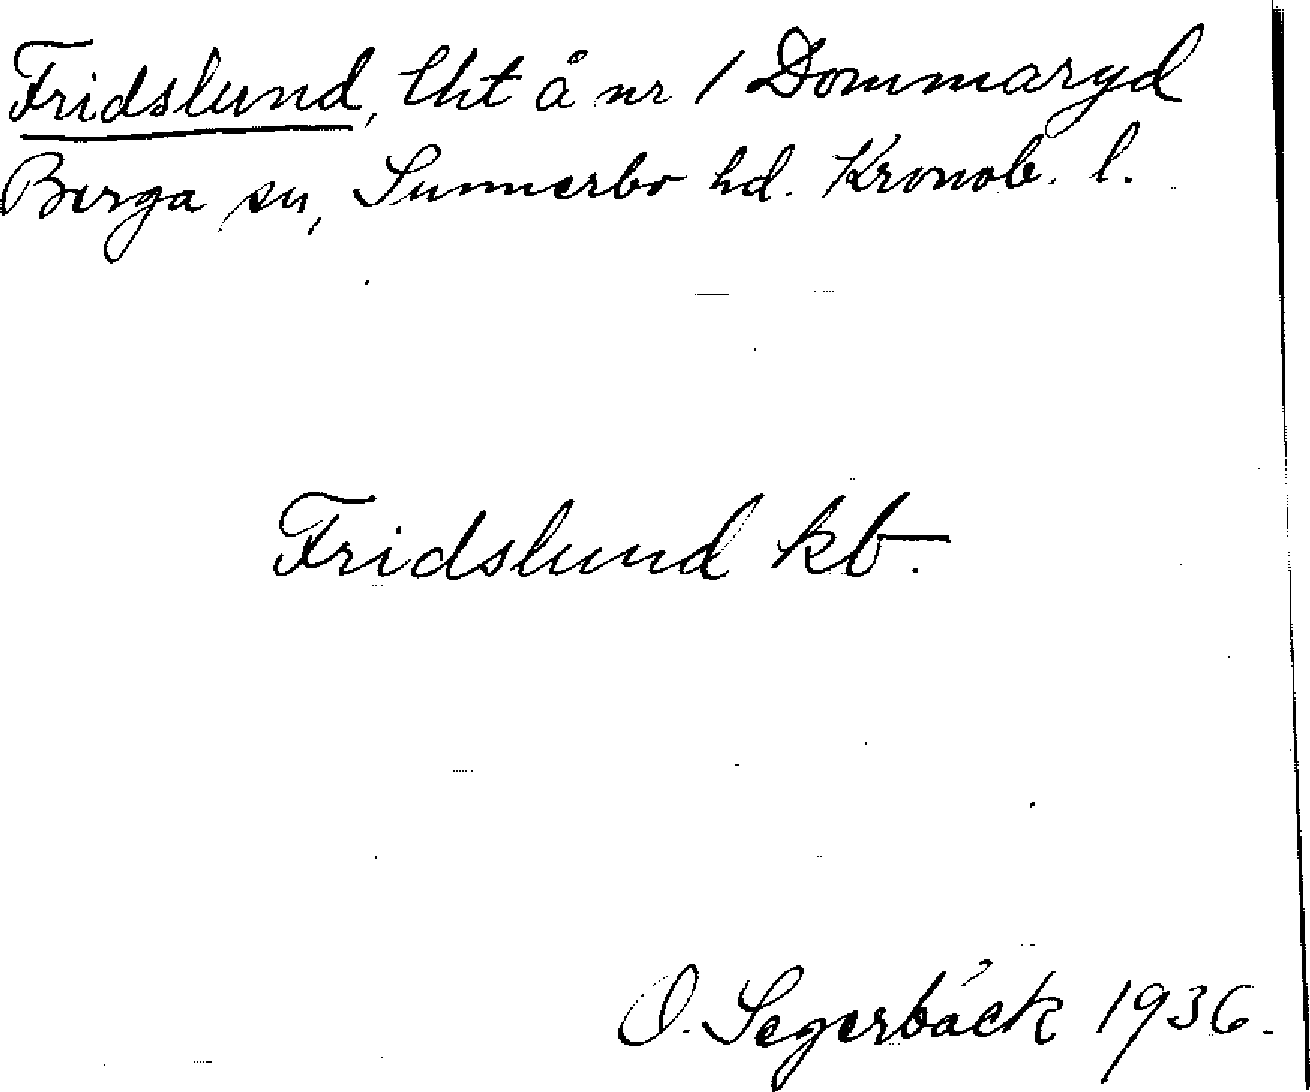 Fridslund, lht å nr 1 Dommaryd
Berga sn, Sunnerbo hd. Kronob. l.
Fridslund kb.
O. Segerbäck 1936.